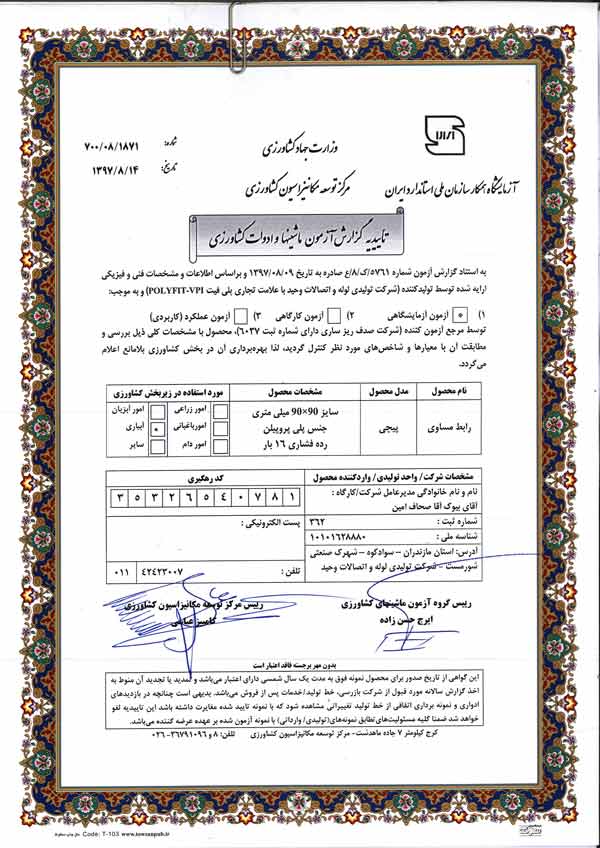 وزارت جهاد کشاورزی
شماره: ۷۰۰/۰۸/۱۸۷۱
تاریخ: ۱۳۹۷/۸/۱۴
مرکز توسعه مکانیزاسیون کشاورزی
آزمایشگاه همکار سازمان ملی استاندارد ایران
تاییدیه گزارش آزمون ماشینها و ادوات کشاورزی
به استناد گزارش آزمون شماره ۵۷۶۱/ک/۸/ع صادره به تاریخ ۱۳۹۷/۰۸/۰۹ و براساس اطلاعات و مشخصات فنی و فیزیکی
ارایه شده توسط تولیدکننده (شرکت تولیدی لوله و اتصالات وحید با علامت تجاری پلی فیت POLYFIT-VPI) و به موجب:
۱) آزمون آزمایشگاهی * ۲) آزمون کارگاهی ۳) آزمون عملکرد (کاربردی)
توسط مرجع آزمون کننده (شرکت صدف ریز ساری دارای شماره ثبت ۶۰۳۷)، محصول با مشخصات کلی ذیل بررسی و
مطابقت آن با معیارها و شاخص‌های مورد نظر کنترل گردید، لذا بهره‌برداری آن در بخش کشاورزی بلامانع اعلام
می‌گردد.
نام محصول مدل محصول مشخصات محصول مورد استفاده در زیربخش کشاورزی
رابط مساوی پیچی
سایز ۹۰×۹۰ میلی متری
جنس پلی پروپیلن
رده فشاری ۱۶ بار
امور زراعی امور آبزیان
امورباغبانی آبیاری *
امور دام سایر
مشخصات شرکت/ واحد تولیدی/ واردکننده محصول
کد رهگیری
نام و نام خانوادگی مدیرعامل شرکت/کارگاه :
آقای بیوک آقا صحاف امین
۳ ۵ ۳ ۲ ۶ ۵ ۴ ۰ ۷ ۸ ۱
شماره ثبت : ۳۶۲
پست الکترونیکی:
شناسه ملی : ۱۰۱۰۱۶۲۸۸۸۰
آدرس: استان مازندران - سوادکوه - شهرک صنعتی
شورمست - شرکت تولیدی لوله و اتصالات وحید
تلفن : ۴۲۴۲۳۰۰۷ ۰۱۱
رییس گروه آزمون ماشینهای کشاورزی
ایرج حسن زاده
رییس مرکز توسعه مکانیزاسیون کشاورزی
کامبیز عباسی
بدون مهر برجسته فاقد اعتبار است
این گواهی از تاریخ صدور برای محصول نمونه فوق به مدت یک سال شمسی دارای اعتبار می‌باشد و تمدید یا تجدید آن منوط به
اخذ گزارش سالانه مورد قبول از شرکت بازرسی، خط تولید/خدمات پس از فروش می‌باشد. بدیهی است چنانچه در بازدیدهای
ادواری و نمونه برداری اتفاقی از خط تولید تغییراتی مشاهده شود که با نمونه تایید شده مغایرت داشته باشد این تاییدیه لغو
خواهد شد ضمنا کلیه مسئولیت‌های تطابق نمونه‌های (تولیدی/ وارداتی) با نمونه آزمون شده بر عهده عرضه کننده می‌باشد.
کرج کیلومتر ۷ جاده ماهدشت- مرکز توسعه مکانیزاسیون کشاورزی تلفن: ۸ و ۳۶۷۹۱۰۹۶-۰۲۶
Code: T-103 www.towsaspah.ir